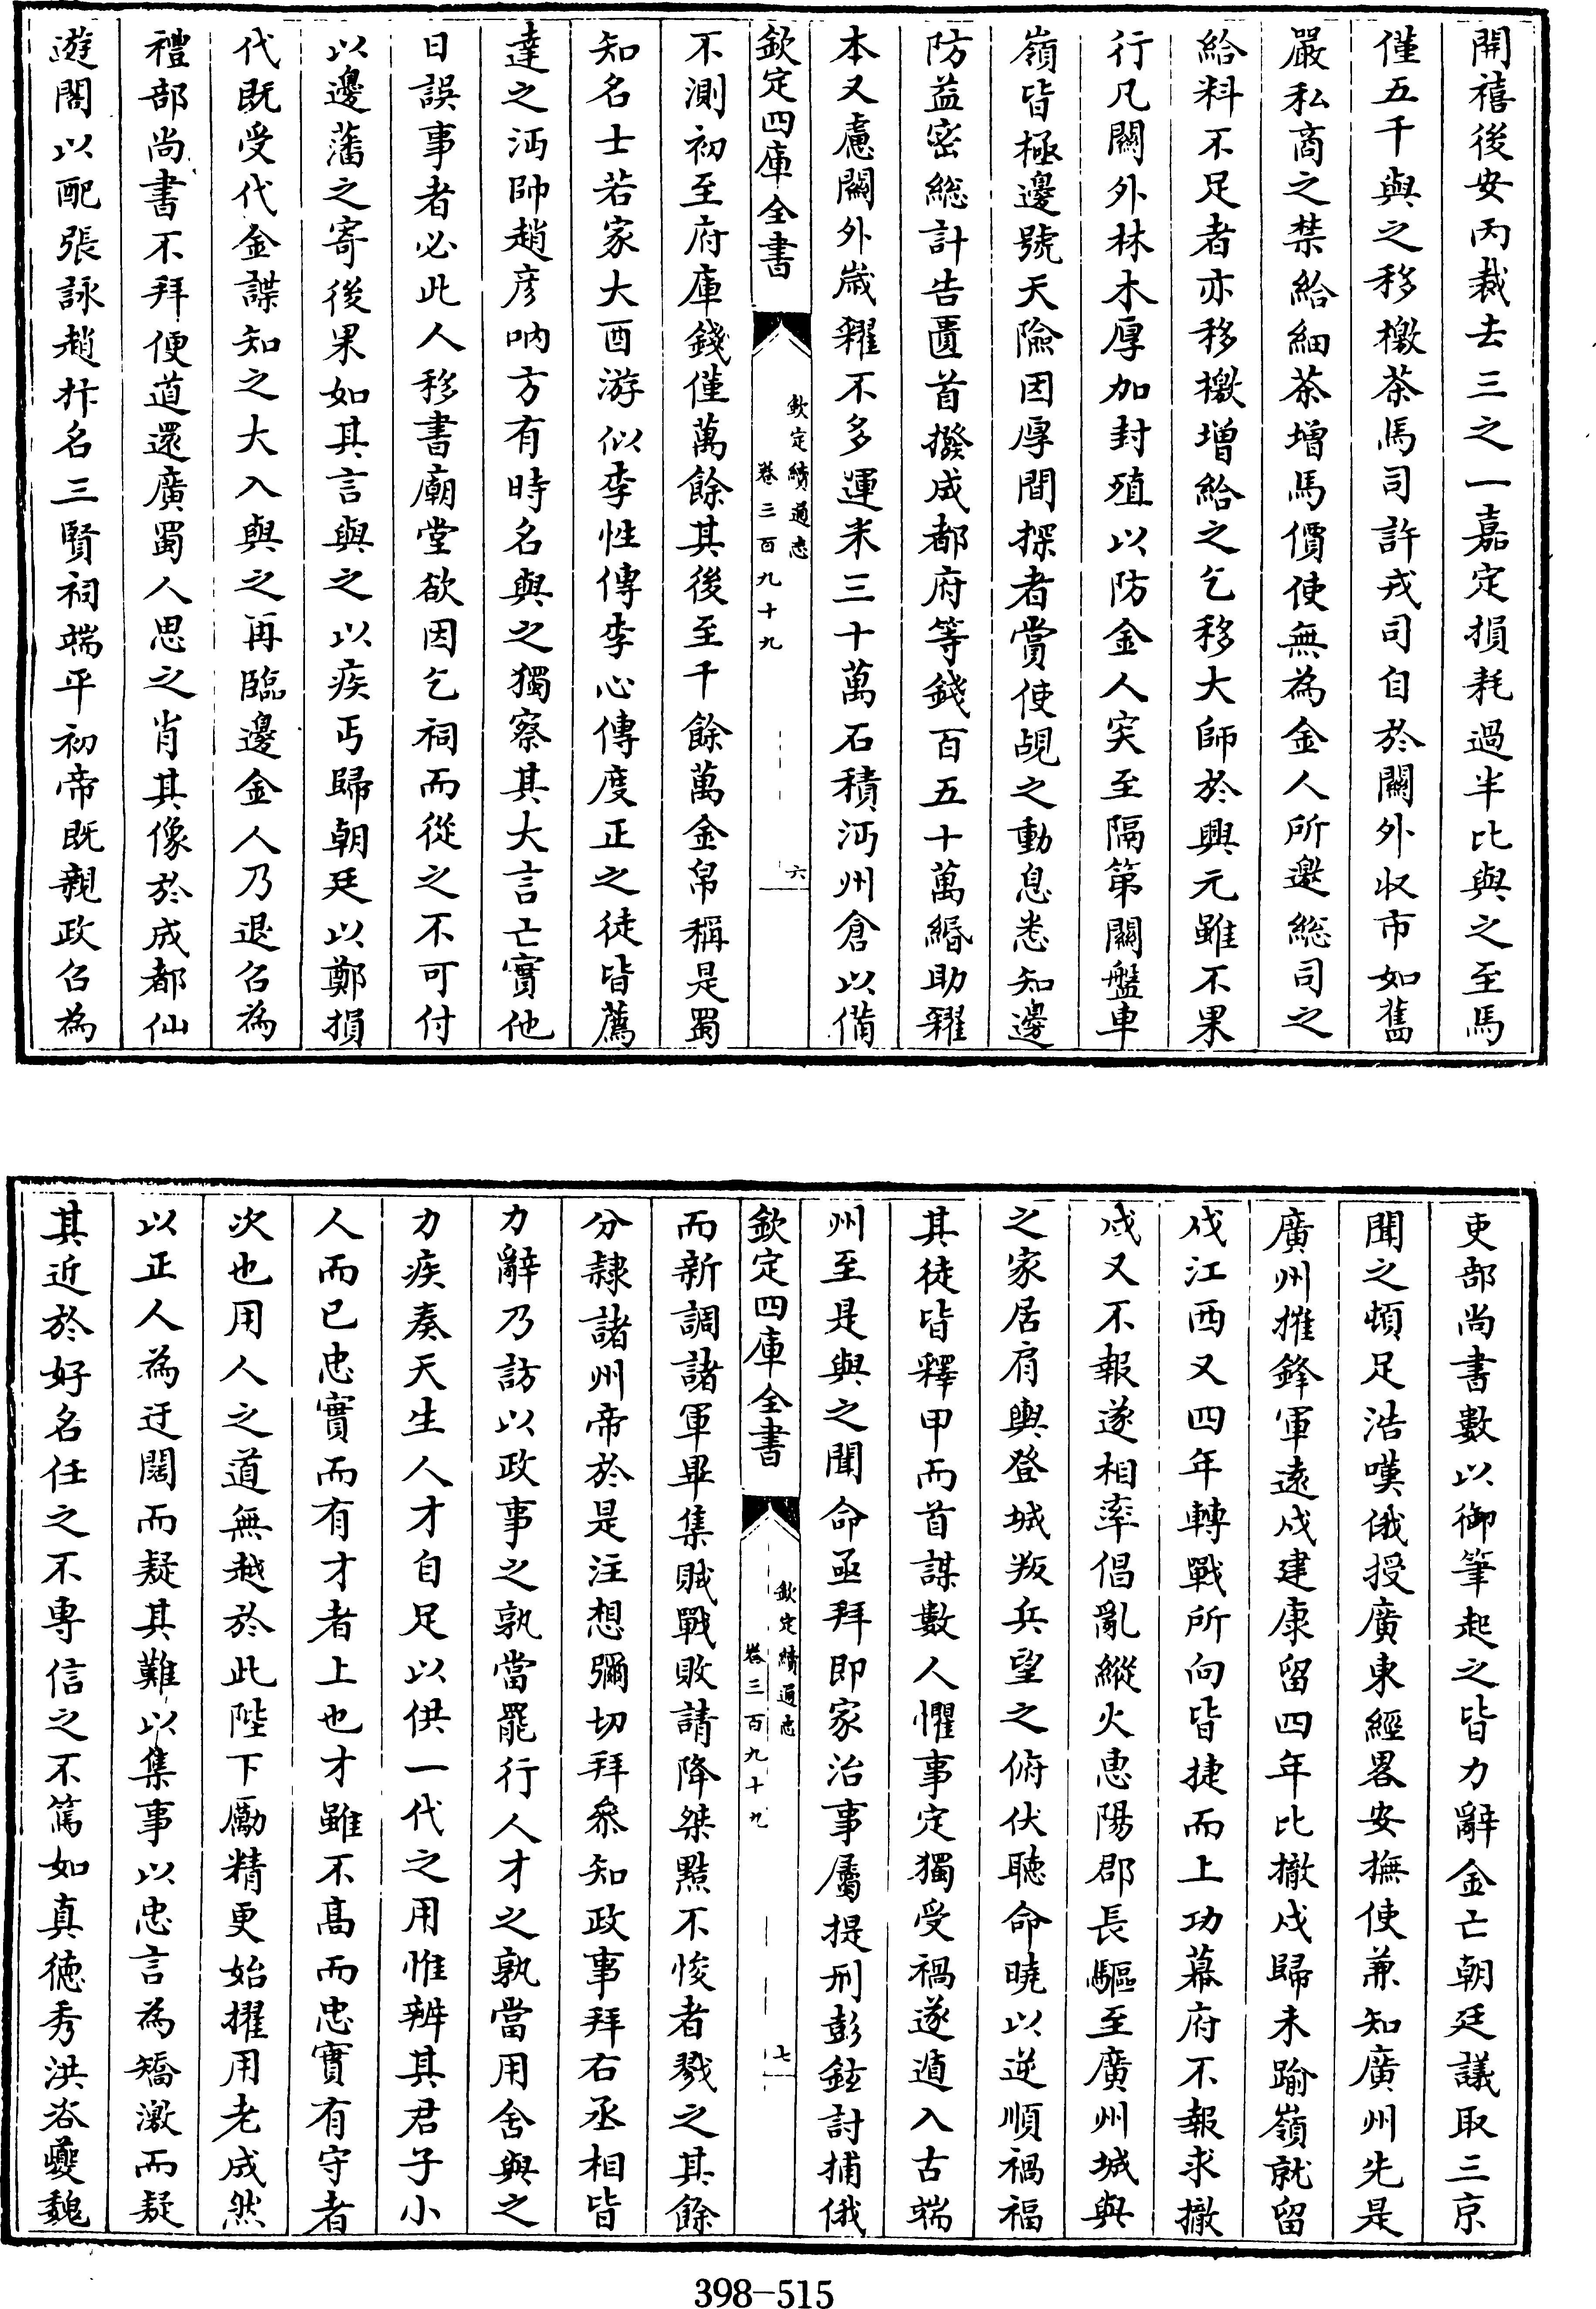 開禧後安丙裁去三之一嘉定損耗過半比與之至馬
僅五千與之移檄茶馬司許戎司自於關外收市如舊
嚴私商之禁給細茶增馬價使無為金人所邀總司之
給料不足者亦移檄增給之乞移大師於興元雖不果
行凡關外林木厚加封殖以防金人突至隔第關盤車
嶺皆極邊號天險因厚間探者賞使覘之動息悉知邊
防益密總計告匱首撥成都府等錢百五十萬緡助糴
本又慮關外歲糴不多運米三十萬石積沔州倉以備
欽定四庫全書
欽定續通志
卷三百九十九
六
不測初至府庫錢僅萬餘其後至千餘萬金帛稱是蜀
知名士若家大酉游似李性傳李心傳度正之徒皆薦
達之沔帥趙彥吶方有時名與之獨察其大言亡實他
日誤事者必此人移書廟堂欲因乞祠而從之不可付
以邊藩之寄後果如其言與之以疾丐歸朝廷以鄭損
代既受代金諜知之大入與之再臨邊金人乃退召為
禮部尚書不拜便道還廣蜀人思之肖其像於成都仙
遊閣以配張詠趙抃名三賢祠端平初帝既親政召為
吏部尚書數以御筆起之皆力辭金亡朝廷議取三京
聞之頓足浩嘆俄授廣東經畧安撫使兼知廣州先是
廣州摧鋒軍遠戍建康留四年比撤戍歸未踰嶺就留
戍江西又四年轉戰所向皆捷而上功幕府不報求撤
戍又不報遂相率倡亂縱火惠陽郡長驅至廣州城與
之家居肩輿登城叛兵望之俯伏聽命曉以逆順禍福
其徒皆釋甲而首謀數人懼事定獨受禍遂遁入古端
州至是與之聞命亟拜即家治事屬提刑彭鉉討捕俄
欽定四庫全書
欽定續通志
卷三百九十九
七
而新調諸軍畢集賊戰敗請降桀黠不悛者戮之其餘
分隸諸州帝於是注想彌切拜參知政事拜右丞相皆
力辭乃訪以政事之孰當罷行人才之孰當用舍與之
力疾奏天生人才自足以供一代之用惟辨其君子小
人而已忠實而有才者上也才雖不高而忠實有守者
次也用人之道無越於此陛下勵精更始擢用老成然
以正人為迂闊而疑其難以集事以忠言為矯激而疑
其近於好名任之不專信之不篤如真德秀洪咨夔魏
398-515